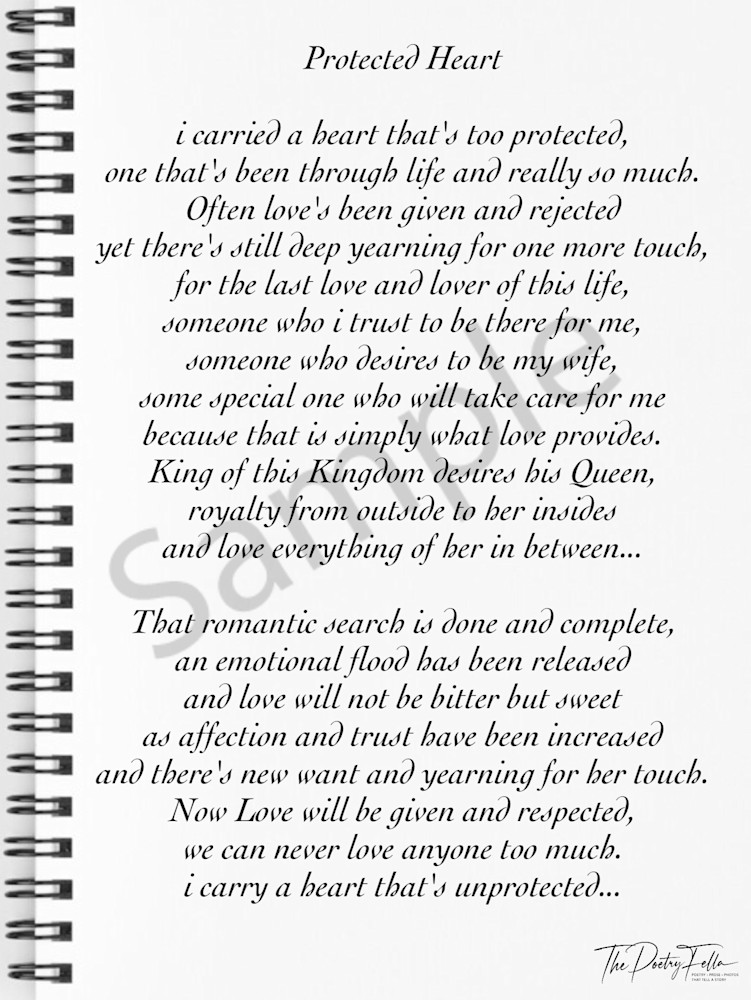 Protected Heart
i carried a heart that's too protected,
one that's been through life and really so much.
Often love's been given and rejected
yet there's still deep yearning for one more touch,
for the last love and lover of this life,
someone who i trust to be there for me,
someone who desires to be my wife,
some special one who will take care for me
because that is simply what love provides.
King of this Kingdom desires his Queen,
royalty from outside to her insides
and love everything of her in between...
That romantic search is done and complete,
an emotional flood has been released
and love will not be bitter but sweet
as affection and trust have been increased
and there's new want and yearning for her touch.
Now Love will be given and respected,
we can never love anyone too much.
i carry a heart that's unprotected...
Sample
ThePoetryFella
POETRY • PROSE • PHOTOS
THAT TELL A STORY